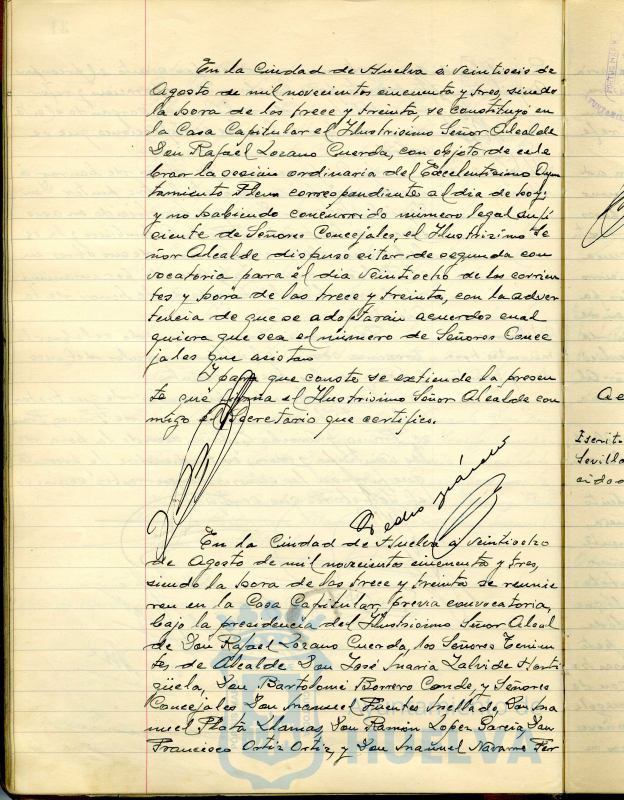 En la Ciudad de Huelva a veintiseis de
Agosto de mil novecientos cincuenta y tres, siendo
la hora de las trece y treinta, se constituyó en
la Casa Capitular el Ilustrisimo Señor Alcalde
Don Rafael Lozano Cuerda, con objeto de cele
brar la sesión ordinaria del Excelentisimo Ayun
tamiento Pleno correspondiente al dia de hoy;
y no habiendo concurrido número legal sufi
ciente de Señores Concejales, el Ilustrisimo Se
ñor Alcalde dispuso citar de segunda con
vocatoria para el dia veintiocho de los corrien
tes y hora de las trece y treinta, con la adver
tencia de que se adoptarán acuerdos cual
quiera que sea el número de Señores Conce
jales que asistan
Y para que conste se extiende la presen
te que firma el Ilustrisimo Señor Alcalde con
migo el Secretario que certifico.
Pedro
En la Ciudad de Huelva a veintiocho
de Agosto de mil novecientos cincuenta y tres,
siendo la hora de las trece y treinta se reunie
ron en la Casa Capitular, previa convocatoria,
bajo la presidencia del Ilustrisimo Señor Alcal
de Don Rafael Lozano Cuerda, los Señores Tenien
tes de Alcalde Don José Maria Zalvide Horti
güela, Don Bartolomé Borrero Conde, y Señores
Concejales Don Manuel Fuentes Mellado, Don Ma
nuel Plata Llamas, Don Ramón Lopez Garcia, Don
Francisco Ortiz Ortiz, y Don Manuel Navarro Fer
HUELVA
Escrit.
Sevilla